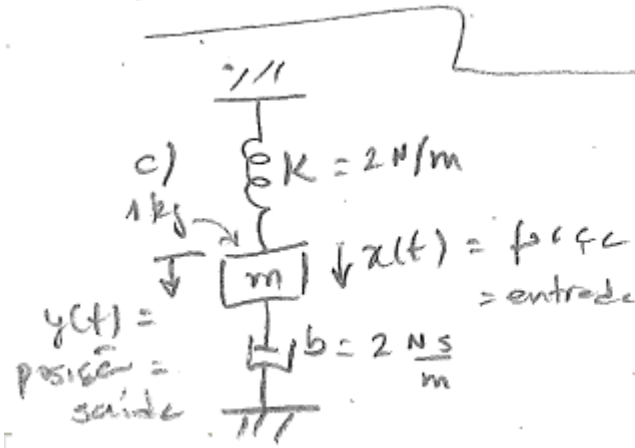 c)
K = 2 N/m
1 kg
m
x(t) = força
= entrada
y(t) =
posição =
saída
b = 2 Ns/m